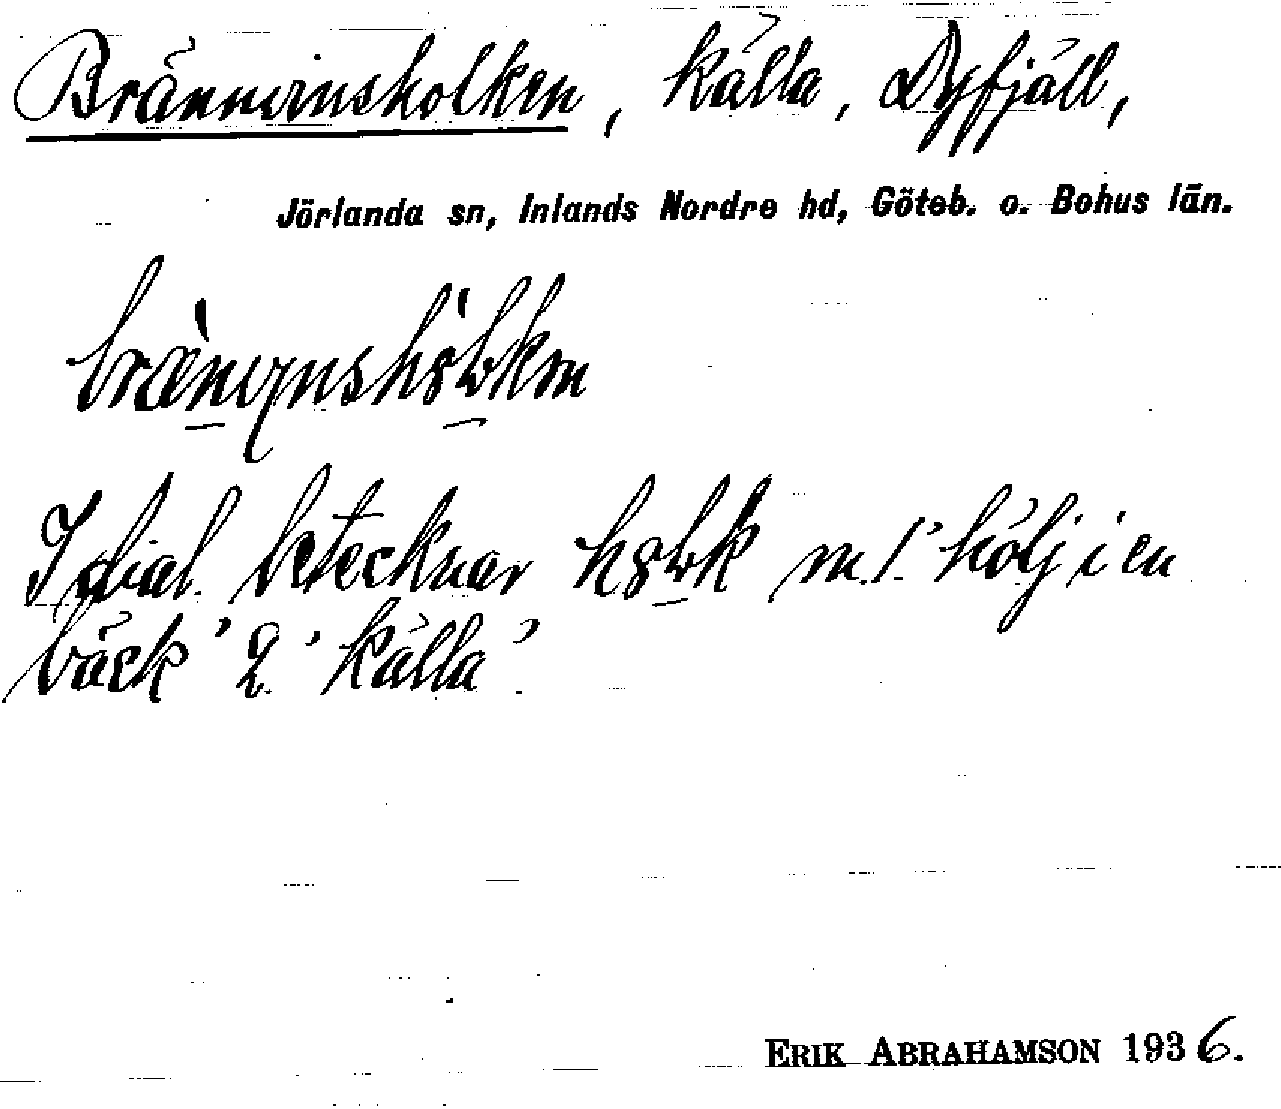 Brännvinsholken, källa, Dyfjäll,
Jörlanda sn, Inlands Nordre hd, Göteb. o. Bohus län.
I dial. betecknar m. 1. 'hölj i en
bäck' 2. 'källa'.
ERIK ABRAHAMSON 1936.